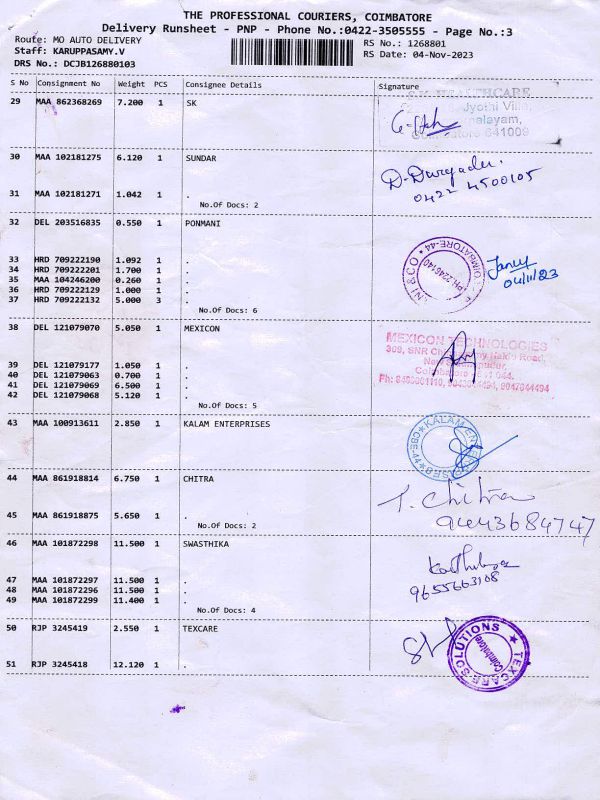 THE PROFESSIONAL COURIERS, COIMBATORE
Delivery Runsheet - PNP - Phone No.:0422-3505555 - Page No.:3
Route: MO AUTO DELIVERY RS No.: 1268801
Staff: KARUPPASAMY.V RS Date: 04-Nov-2023
DRS No.: DCJB126880103
S No Consignment No Weight PCS Consignee Details Signature
29 MAA 862368269 7.200 1 SK
HEALTHCARE
Jyothi Villa,
Coimbatore 641009
30 MAA 102181275 6.120 1 SUNDAR
0422 4500105
31 MAA 102181271 1.042 1 .
No.Of Docs: 2
32 DEL 203516835 0.550 1 PONMANI
COIMBATORE-44
PH:2246140
04/11/23
33 HRD 709222190 1.092 1 .
34 HRD 709222201 1.700 1 .
35 MAA 104246200 0.260 1 .
36 HRD 709222129 1.000 1 .
37 HRD 709222132 5.000 3 .
No.Of Docs: 6
38 DEL 121079070 5.050 1 MEXICON
MEXICON TECHNOLOGIES
309, SNR Naidu Road,
39 DEL 121079177 1.050 1 .
40 DEL 121079063 0.700 1 .
41 DEL 121079069 6.500 1 .
42 DEL 121079068 5.120 1 .
No.Of Docs: 5
43 MAA 100913611 2.850 1 KALAM ENTERPRISES
KALAM ENTERPRISES
CBE-44
44 MAA 861918814 6.750 1 CHITRA
T. Chitra
9443684747
45 MAA 861918875 5.650 1 .
No.Of Docs: 2
46 MAA 101872298 11.500 1 SWASTHIKA
9655663108
47 MAA 101872297 11.500 1 .
48 MAA 101872296 11.500 1 .
49 MAA 101872299 11.400 1 .
No.Of Docs: 4
50 RJP 3245419 2.550 1 TEXCARE
TEXCARE SOLUTIONS
Coimbatore
51 RJP 3245418 12.120 1 .